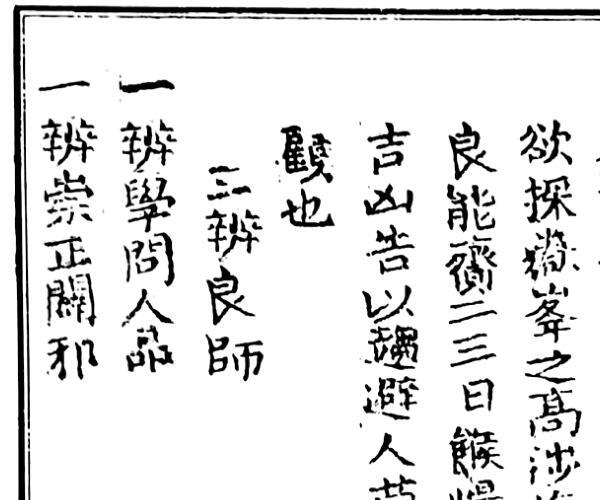 欲探䕫峯之高涉
良能齎二三日餱糧
吉凶告以趨避人苟
觀也
三辨良師
一辨學問人品
一辨崇正闢邪